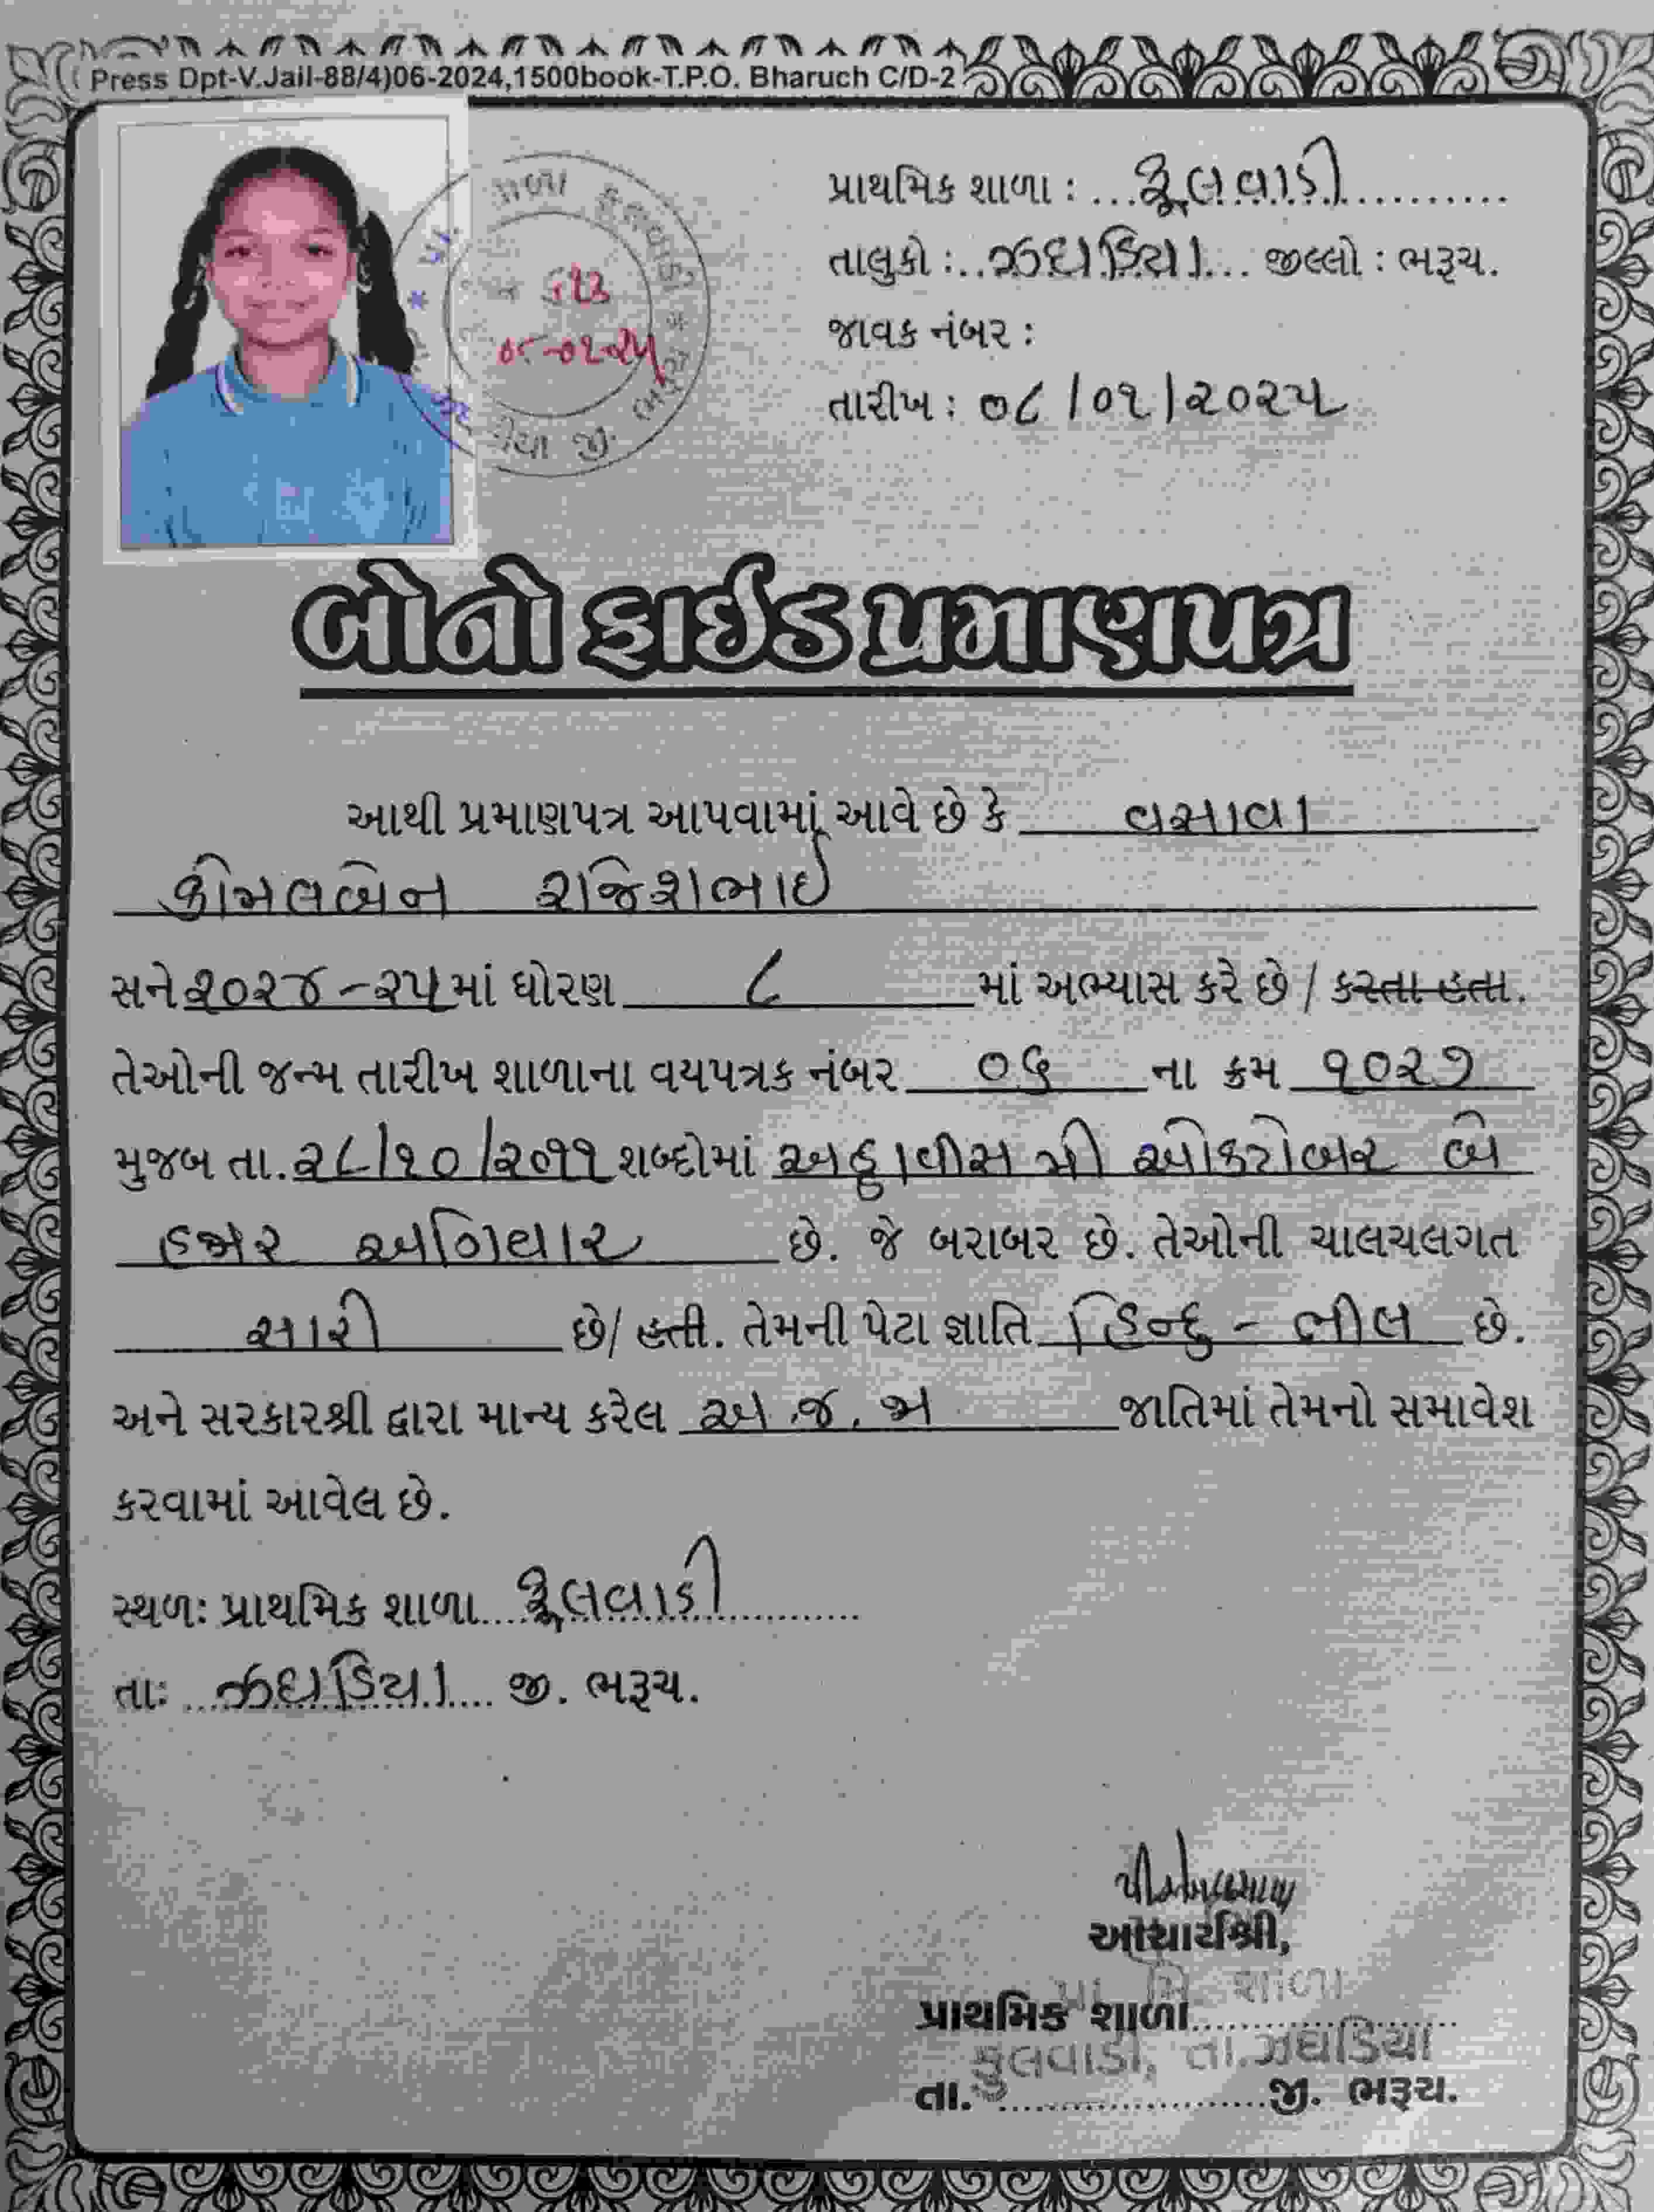 ( Press Dpt-V.Jail-88/4)06-2024,1500book-T.P.O. Bharuch C/D-2
પ્રાથમિક શાળા : ...ફૂલવાડી...........
તાલુકો :..ઝઘડિયા... જીલ્લો : ભરૂચ.
જાવક નંબર :
તારીખ : ૦૮/૦૧/૨૦૨૫
બોનોફાઈડ પ્રમાણપત્ર
આથી પ્રમાણપત્ર આપવામાં આવે છે કે વસાવા
કોમલબેન રાજેશભાઈ
સને ૨૦૨૪-૨૫ માં ધોરણ ૮ માં અભ્યાસ કરે છે / કરતા હતા.
તેઓની જન્મ તારીખ શાળાના વયપત્રક નંબર ૦૬ ના ક્રમ ૧૦૨૭
મુજબ તા. ૨૮/૧૦/૨૦૧૧ શબ્દોમાં અઠ્ઠાવીસ મી ઓક્ટોબર બે
હજાર અગિયાર છે. જે બરાબર છે. તેઓની ચાલચલગત
સારી છે/ હતી. તેમની પેટા જ્ઞાતિ હિન્દુ - ભીલ છે.
અને સરકારશ્રી દ્વારા માન્ય કરેલ અ.જ.જા જાતિમાં તેમનો સમાવેશ
કરવામાં આવેલ છે.
સ્થળઃ પ્રાથમિક શાળા....ફૂલવાડી............
તાઃ ...ઝઘડિયા.... જી. ભરૂચ.
આચાર્યશ્રી,
પ્રાથમિક શાળા......................
ફુલવાડી, તા.ઝઘડિયા
તા. ......................જી. ભરૂચ.